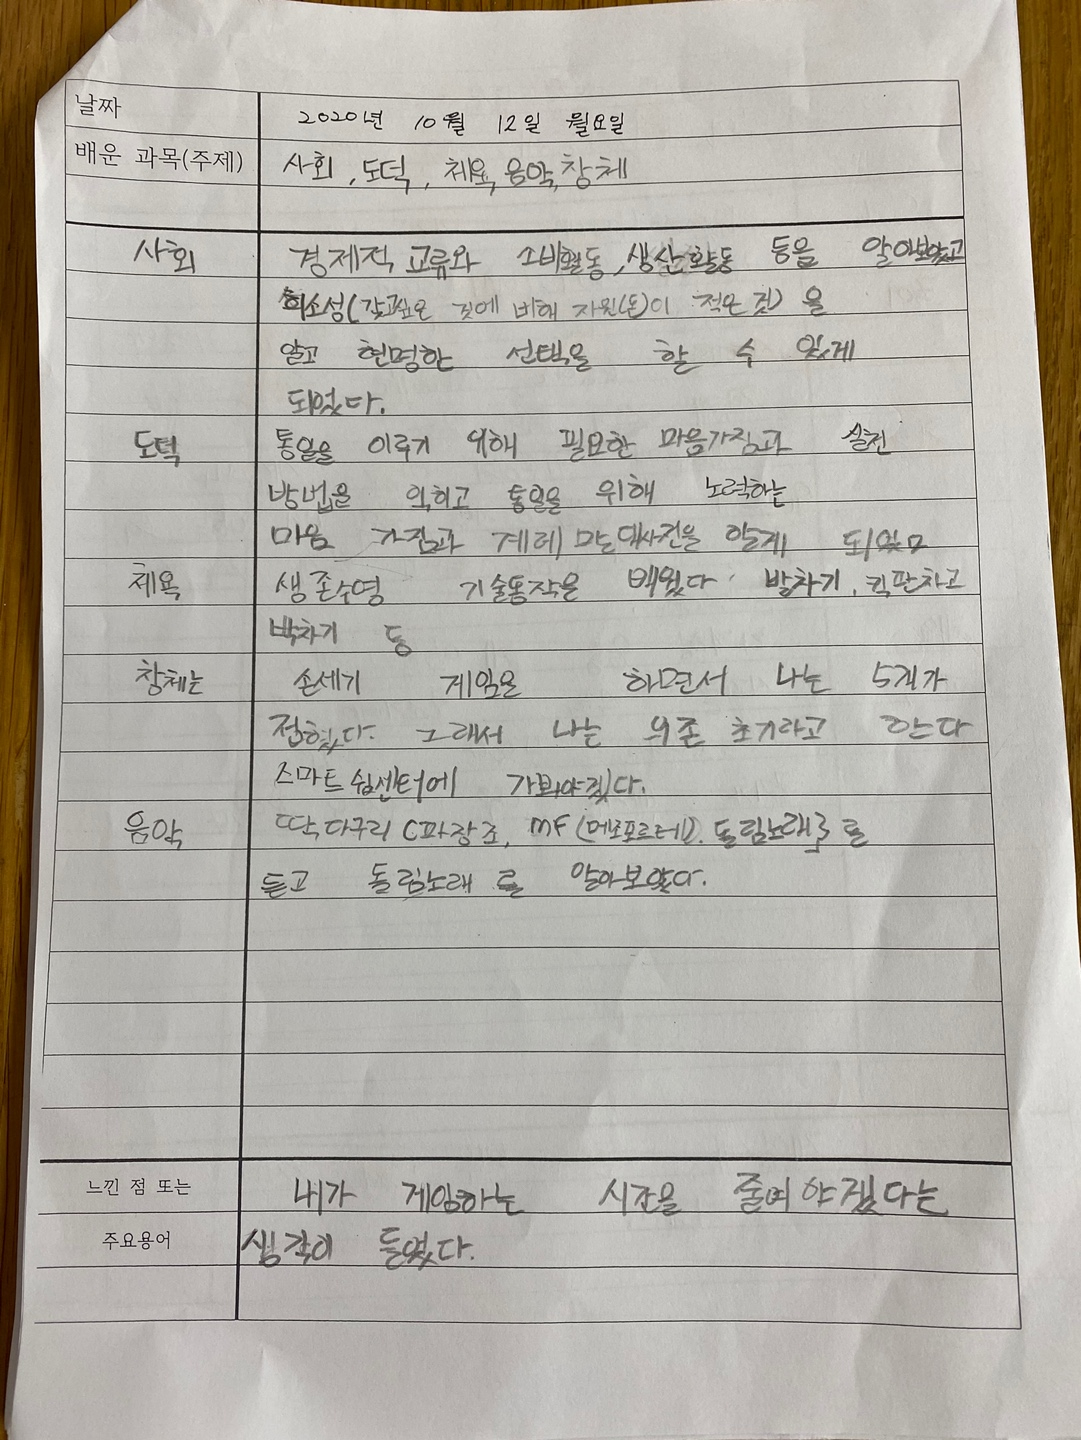 날짜 2020년 10월 12일 월요일
배운 과목(주제) 사회, 도덕, 체육, 음악, 창체
사회 경제적 교류와 소비활동, 생산활동 등을 알아보았고
희소성(갖고싶은 것에 비해 자원(돈)이 적은 것)을
알고 현명한 선택을 할 수 있게
되었다.
도덕 통일을 이루기 위해 필요한 마음가짐과 실천
방법을 익히고 통일을 위해 노력하는
마음 가짐과 겨레 말 대사전을 알게 되었다
체육 생존수영 기술동작을 배웠다. 발차기, 킥판차고
발차기 등
창체는 손세기 게임을 하면서 나는 5개가
접혔다. 그래서 나는 의존 초기라고 한다
스마트쉼센터에 가봐야겠다.
음악 딱다구리 C파장조, MF(메조포르테). 돌림노래 를
듣고 돌림노래 를 알아보았다.
느낀 점 또는 내가 게임하는 시간을 줄여야겠다는
주요용어 생각이 들었다.